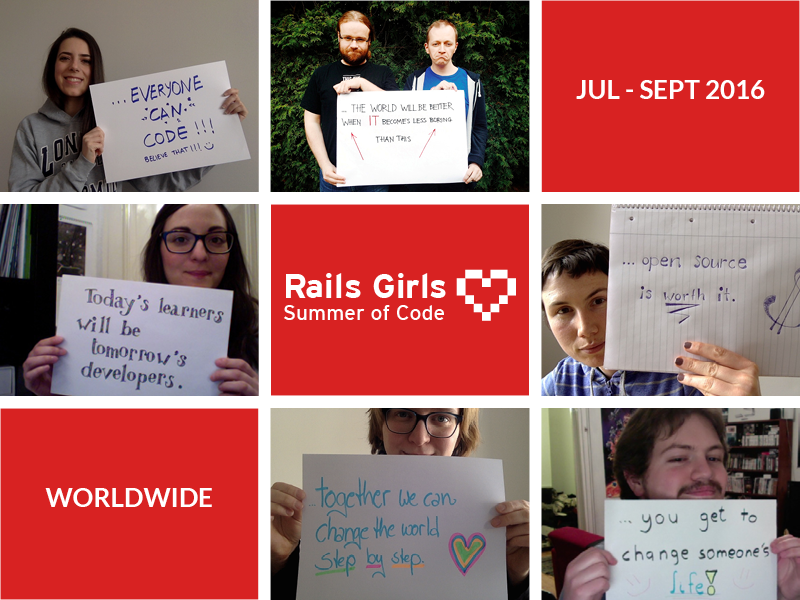 ...EVERYONE
CAN
CODE!!!
BELIEVE THAT!!!
... THE WORLD WILL BE BETTER
WHEN IT BECOME'S LESS BORING
THAN THIS
JUL - SEPT 2016
Today's learners
will be
tomorrow's
developers.
Rails Girls
Summer of Code
... open source
is worth it.
WORLDWIDE
...together we can
change the world
step by step.
... you get to
change someone's
life!